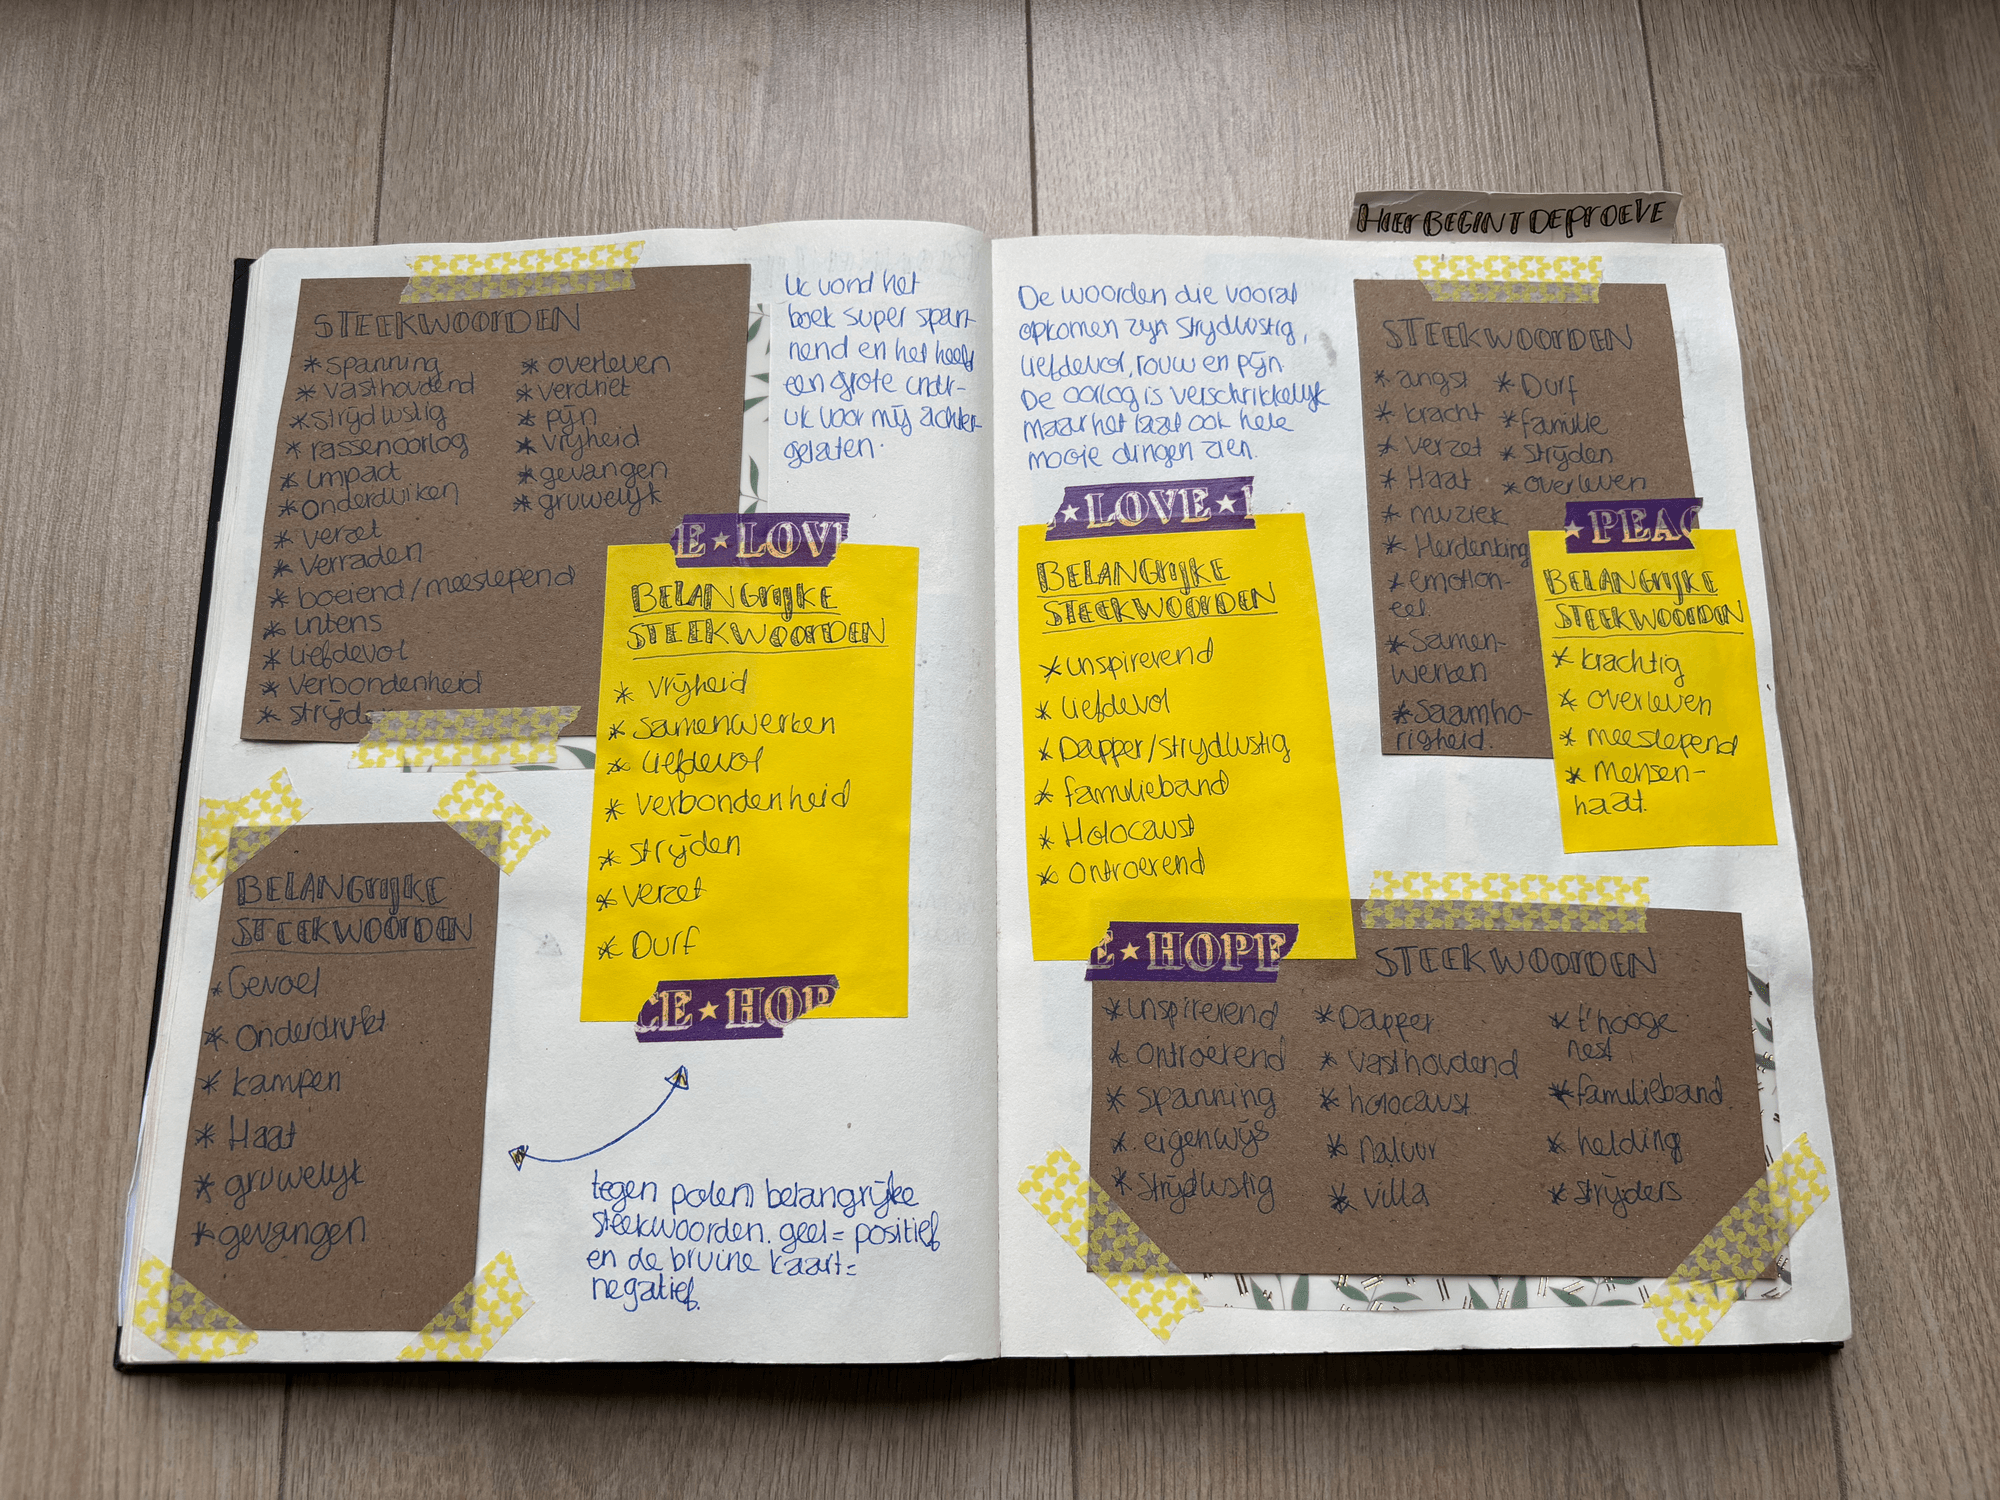 HIER BEGINT DE PROEVE
STEEKWOORDEN
* spanning
* vasthoudend
* strijdlustig
* rassenoorlog
* impact
* onderduiken
* verzet
* verraden
* boeiend/meeslepend
* intens
* liefdevol
* verbondenheid
* strijde
* overleven
* verdriet
* pijn
* vrijheid
* gevangen
* gruwelijk
Ik vond het
boek super span-
nend en het heeft
een grote indr-
uk voor mij achter-
gelaten.
E★LOVE
BELANGRIJKE
STEEKWOORDEN
* vrijheid
* samenwerken
* liefdevol
* verbondenheid
* strijden
* verzet
* Durf
CE★HOP
BELANGRIJKE
STEEKWOORDEN
* Gevoel
* Onderdrukt
* kampen
* Haat
* gruwelijk
* gevangen
tegen polen belangrijke
steekwoorden. geel = positief
en de bruine kaart =
negatief.
De woorden die vooral
opkomen zijn strijdlustig,
liefdevol, rouw en pijn.
De oorlog is verschrikkelijk
maar het laat ook hele
mooie dingen zien.
★LOVE★
BELANGRIJKE
STEEKWOORDEN
* inspirerend
* liefdevol
* Dapper/strijdlustig
* familieband
* Holocaust
* Ontroerend
E★HOPE
STEEKWOORDEN
* angst
* kracht
* verzet
* Haat
* muziek
* Herdenking
* emotion-
eel.
* Samen-
werken
* Saamho-
righeid.
* Durf
* familie
* strijden
* overleven
★PEAC
BELANGRIJKE
STEEKWOORDEN
* krachtig
* overleven
* meeslepend
* Mensen-
haat.
STEEKWOORDEN
* inspirerend
* ontroerend
* spanning
* eigenwijs
* strijdlustig
* Dapper
* vasthoudend
* holocaust
* natuur
* villa
* t'hooge
nest
* familieband
* helding
* strijders